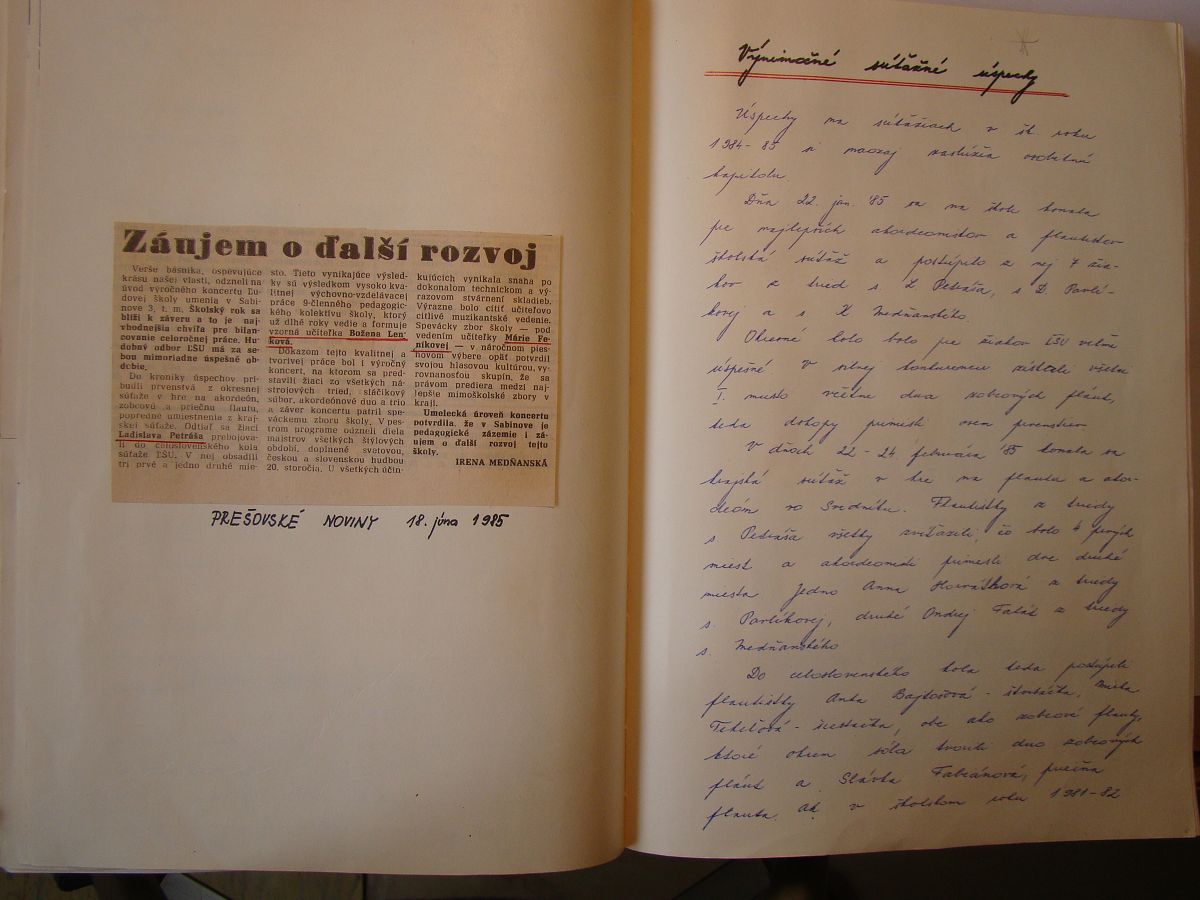 Záujem o ďalší rozvoj
Verše básnika, ospevujúce
krásu našej vlasti, odzneli na
úvod výročného koncertu Ľu-
dovej školy umenia v Sabi-
nove 3. t. m. Školský rok sa
blíži k záveru a to je naj-
vhodnejšia chvíľa pre bilan-
covanie celoročnej práce. Hu-
dobný odbor ĽŠU má za se-
bou mimoriadne úspešné ob-
dobie.
Do kroniky úspechov pri-
budli prvenstvá z okresnej
súťaže v hre na akordeón,
zobcovú a priečnu flautu,
popredné umiestnenia z kraj-
skej súťaže. Odtiaľ sa žiaci
Ladislava Petráša prebojova-
li do celoslovenského kola
súťaže ĽŠU. V nej obsadili
tri prvé a jedno druhé mie-
sto. Tieto vynikajúce výsled-
ky sú výsledkom vysoko kva-
litnej výchovno-vzdelávacej
práce 9-členného pedagogic-
kého kolektívu školy, ktorý
už dlhé roky vedie a formuje
vzorná učiteľka Božena Len-
ková.
Dôkazom tejto kvalitnej a
tvorivej práce bol i výročný
koncert, na ktorom sa pred-
stavili žiaci zo všetkých ná-
strojových tried, sláčikový
súbor, akordeónové duo a trio
a záver koncertu patril spe-
váckemu zboru školy. V pes-
trom programe odzneli diela
majstrov všetkých štýlových
období, doplnené svetovou,
českou a slovenskou hudbou
20. storočia. U všetkých účin-
kujúcich vynikala snaha po
dokonalom technickom a vý-
razovom stvárnení skladieb.
Výrazne bolo cítiť učiteľovo
citlivé muzikantské vedenie.
Spevácky zbor školy — pod
vedením učiteľky Márie Fe-
nikovej — v náročnom pies-
ňovom výbere opäť potvrdil
svojou hlasovou kultúrou, vy-
rovnanosťou skupín, že sa
právom prediera medzi naj-
lepšie mimoškolské zbory v
kraji.
Umelecká úroveň koncertu
potvrdila, že v Sabinove je
pedagogické zázemie i zá-
ujem o ďalší rozvoj tejto
školy.
IRENA MEDŇANSKÁ
PREŠOVSKÉ NOVINY 18. júna 1985
Výnimočné súťažné úspechy
Úspechy na súťažiach v šk. roku
1984-85 si naozaj zaslúžia osobitnú
kapitolu.
Dňa 22. jan. '85 sa na škole konala
pre najlepších akordeonistov a flautistov
školská súťaž a postúpilo z nej 7 žia-
kov z tried s. L. Petráša, s. D. Pavlí-
kovej a s. K. Medňanského.
Okresné kolo bolo pre žiakov ĽŠU veľmi
úspešné. V silnej konkurencii získali všetci
I. miesto včítane dua zobcových fláut,
teda dokopy priniesli osem prvenstiev.
V dňoch 22-24. februára '85 konala sa
krajská súťaž v hre na flautu a akor-
deón vo Svedníku. Flautistky z triedy
s. Petráša všetky zvíťazili, čo bolo 4 prvých
miest a akordeonisti priniesli dve druhé
miesta. Jedno Anna Horváthová z triedy
s. Pavlíkovej, druhé Ondrej Faťák z triedy
s. Medňanského.
Do celoslovenského kola teda postúpili
flautistky Anka Bajtošová - štvrtáčka,
Tekeľová - šiestačka, obe ako zobcové flauty,
ktoré okrem sóla tvorili duo zobcových
fláut a Slávka Fabiánová, priečna
flauta. Ak v školskom roku 1981-82